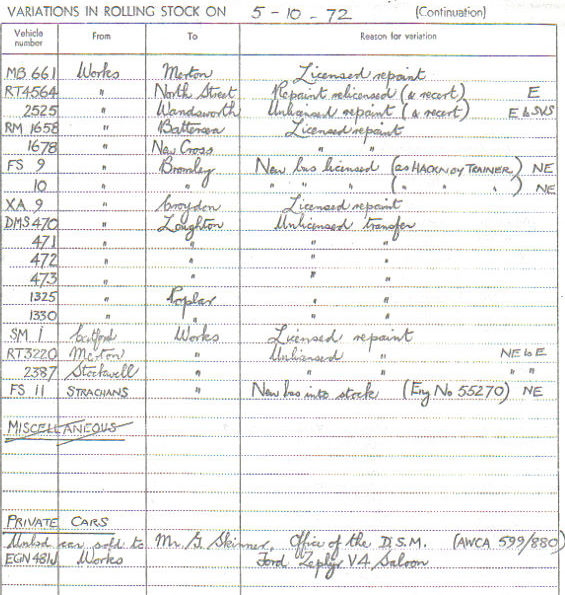 VARIATIONS IN ROLLING STOCK ON 5 - 10 - 72 (Continuation)
Vehicle number From To Reason for variation
MB 661 Works Merton Licensed repaint
RT4564 " North Street Repaint relicensed (& recert) E
2525 " Wandsworth Unlicensed repaint (& recert) E to SVS
RM 1658 " Battersea Licensed repaint
1678 " New Cross " "
FS 9 " Bromley New bus licensed (as HACKNEY TRAINER) NE
10 " " " " " ( " " " ) NE
XA 9 " Croydon Licensed repaint
DMS 470 " Loughton Unlicensed transfer
471 " " " "
472 " " " "
473 " " " "
1325 " Poplar " "
1330 " " " "
SM 1 Catford Works Licensed repaint
RT3220 Merton " Unlicensed " NE to E
2387 Stockwell " " " " "
FS 11 STRACHANS " New bus into stock (Eng No 55270) NE
MISCELLANEOUS
PRIVATE CARS
Unlsd car sold to Mr. G. Skinner, Office of the D.S.M. (AWCA 599/880)
EGN 481J Works Ford Zephyr V4 Saloon